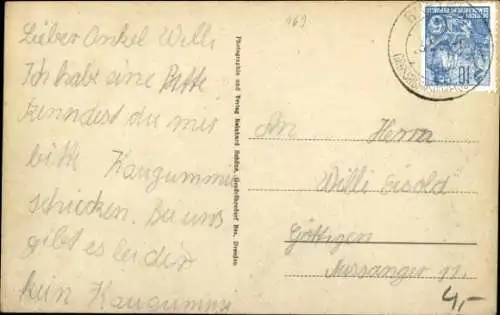 Lieber Onkel Willi
Ich habe eine Bitte
kenndest du mir
bitte Kaugummi
schicken. Bei uns
gibt es leider
kein Kaugummi
169
Photographie und Verlag Reinhard Bez. Dresden
An Herrn
Willi Eisold
Göttigen
11.
4,-
DEUTSCHE
DEMOKRATISCHE REPUBLIK
10